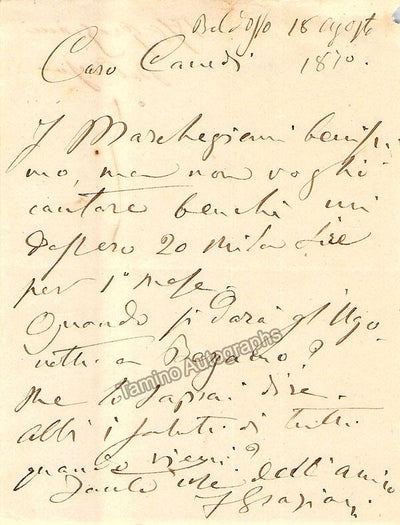 18 agosto
Caro Canedi 1870.
I Marchegiani benis-
mo, ma non voglio
cantare benchè mi
dassero 20 mila Lire
per 1 mese.
Quando si darà gl'Ugo
notti a Bergamo?
Me lo saprai dire.
Abbi i saluti di tutti
quando vieni?
dell'amico
Graziani
Tamino Autographs